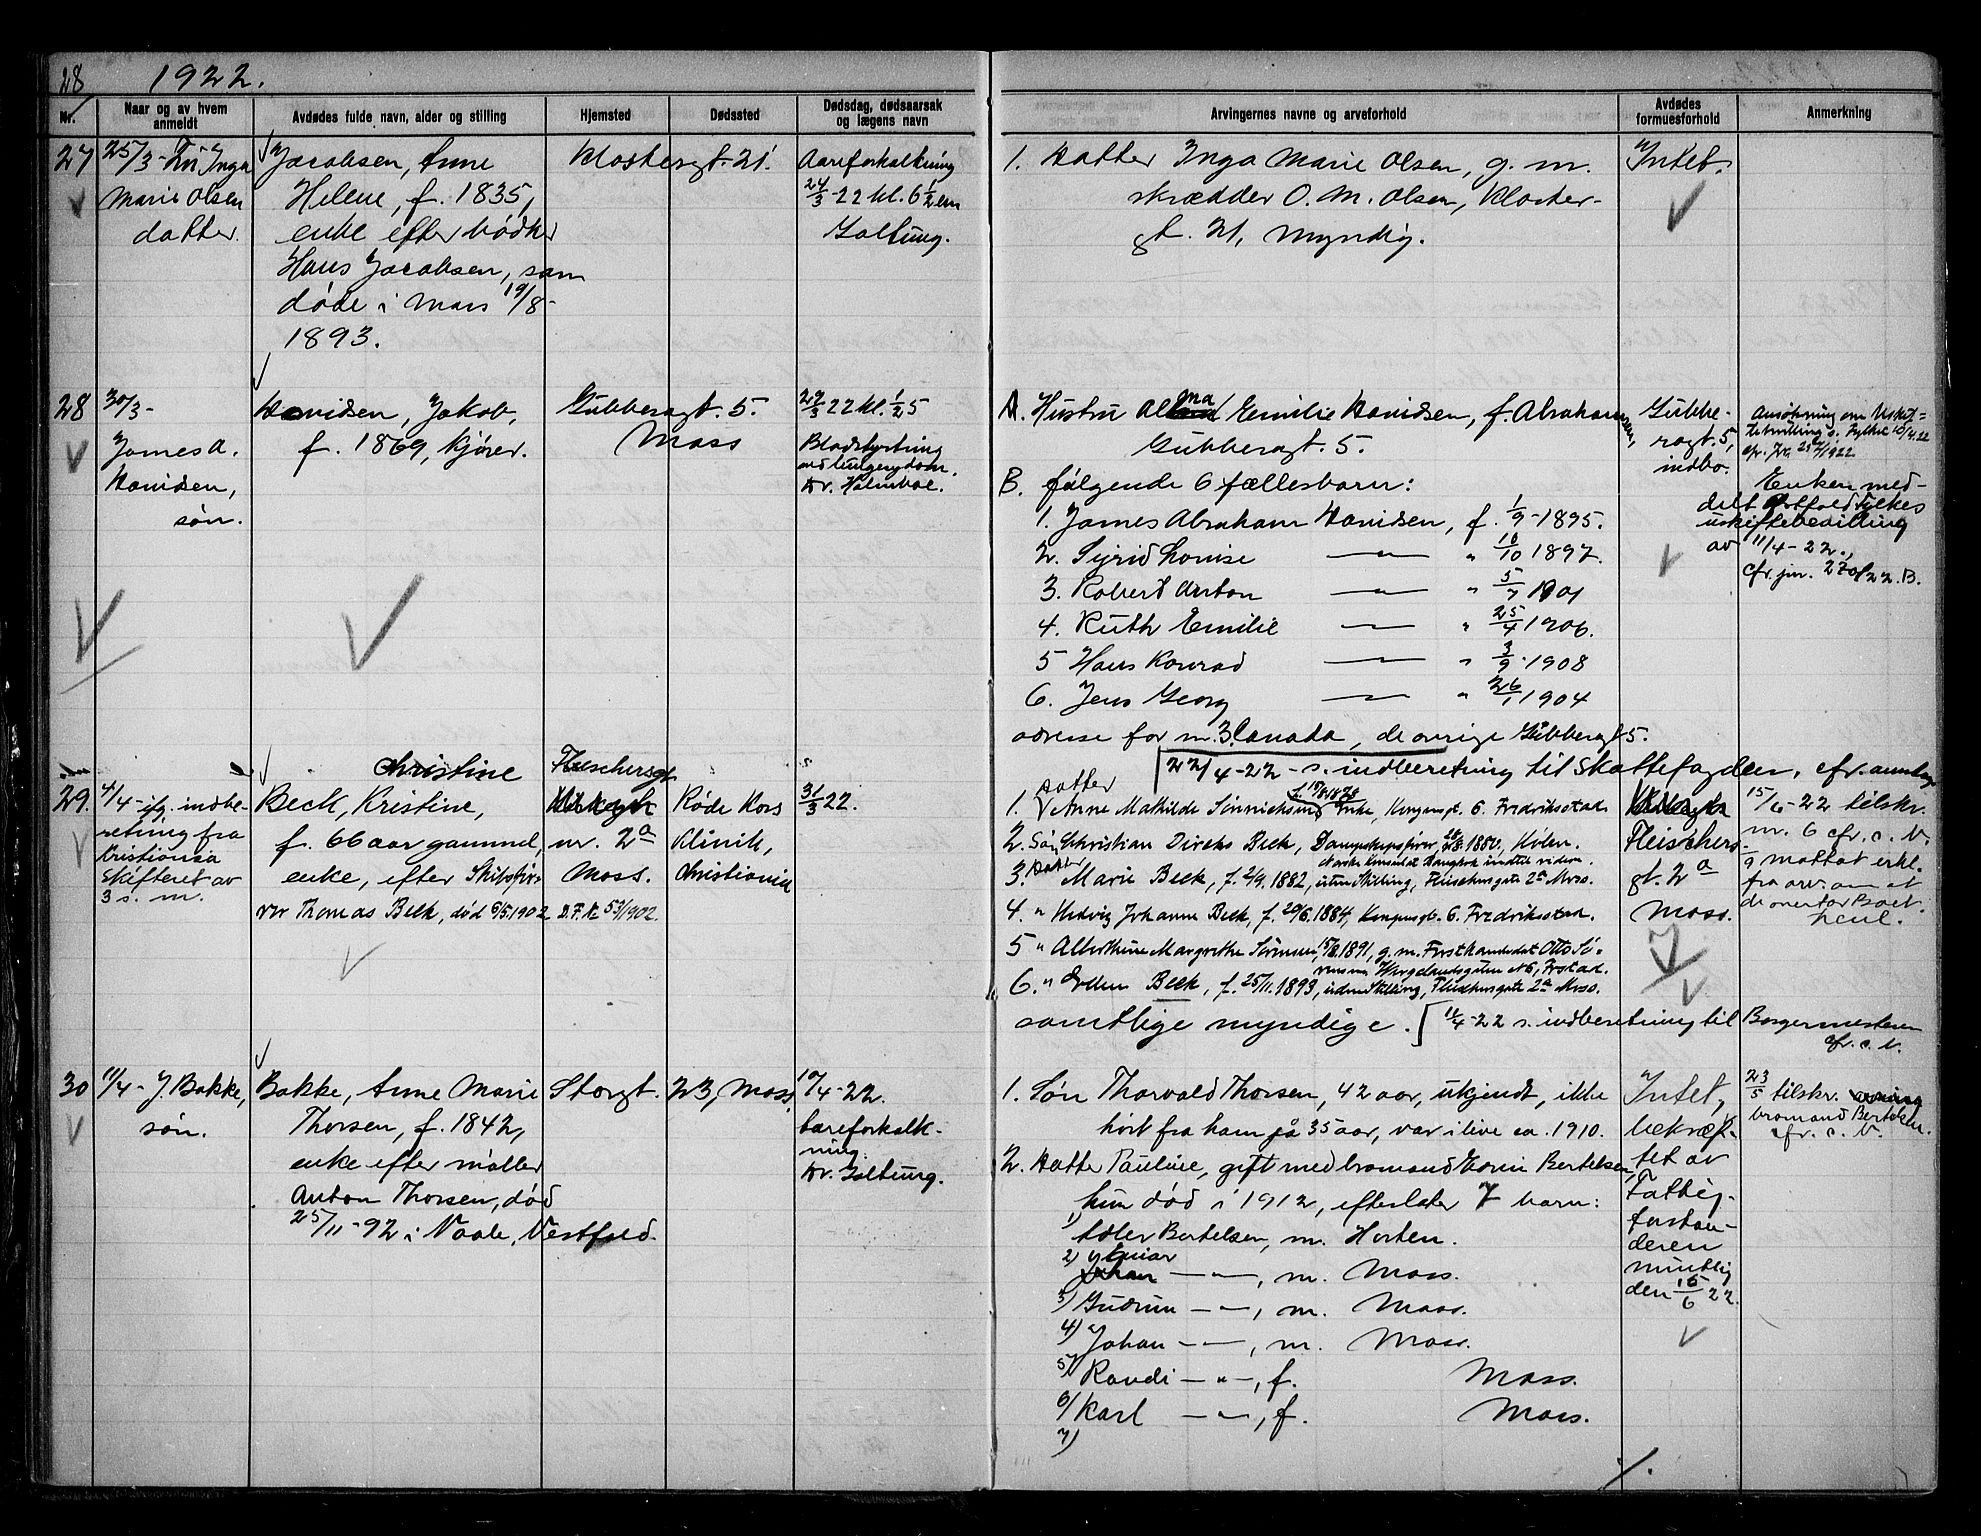 28 1922.
Nr.
Naar og av hvem anmeldt
Avdødes fulde navn, alder og stilling
Hjemsted
Dødssted
Dødsdag, dødsaarsak og lægens navn
Arvingernes navne og arveforhold
Avdødes formuesforhold
Anmerkning
27
25/3- Fru Inga
Marie Olsen
datter.
Jacobsen, Anne
Helene, f. 1835,
enke efter bødker
Hans Jacobsen, som
døde i Moss 19/8-
1893.
Klostergt. 21.
Aareforkalkning
24/3-22 kl. 6 1/2 em
Galtung.
1. Datter Inga Marie Olsen, g. m.
skrædder O. M. Olsen, Kloster-
gt. 21, myndig.
Intet.
28
30/3-
James A.
Davidsen,
søn.
Davidsen, Jakob,
f. 1869, kjører.
Gubberogt. 5.
Moss
29/3 22 kl. 1/2 5
Blodstyrtning
ved lungesygdom.
Dr. Holmboe.
A. Hustru Alma Emilie Davidsen, f. Abrahamsen,
Gubberogt. 5.
B. følgende 6 fællesbarn:
1. James Abraham Davidsen, f. 1/9-1895.
2. Sigrid Lovise —"— " 10/10 1897.
3. Robert Anton —"— " 5/7 1901
4. Ruth Emilie —"— " 25/4 1906.
5 Hans Konrad —"— " 3/9-1908
6. Jens Georg —"— " 26/1 1904
adresse for nr. 3. Canada, de øvrige Gubberogt 5.
22/4-22- s. indberetning til Skattefogden, cfr.
Gubbe-
rogt. 5,
indbo.
Ansøkning om Uskifte-
bevilling s. Fylket 10/4.22
cfr. Jr.
Enken med-
delt Østfold Fylkes
uskiftebevilling
av 11/4-22.,
cfr. jnr. 270/22. B.
29.
4/4- ifg. indbe-
retning fra
Kristiania
Skifteret av
3 s. m.
Christine
Beck, Kristine,
f. 66 aar gammel,
enke, efter Skibsfø-
rer Thomas Beck, død 6/5.1902 D.F. 53/1902.
Fleischersgt
nr. 2a
Moss.
Røde Kors
Klinik,
Christiania
31/3 22.
Datter
1. Anne Mathilde Sønnichsen f. 19/8 1878 Enke, Kongensgt. 6. Fredriksstad
2. Søn Christian Dircks Beck, Dampskipsfører,
Norske Konsulat Bangkok indtil videre.
3. Datter Marie Beck, f. 2/9. 1882, uten Stilling, Fleischersgate 2a Moss.
4. " Hedvig Johanne Beck, f. 29/6. 1884, Kongensgt. 6. Fredriksstad.
5 " Alberthine Margrethe Sørensen, 15/8. 1891, g. m. Forstkandidat Otto Sø-
rensen Wergelandsgaten 16, Frstad.
6. " Beck, f. 25/11. 1893, uden Stilling, Fleischersgate 2a Moss.
samtlige myndige. [11/4-22 s. indberetning til Borgermesteren
cfr. c. V.
Fleischers
gt. 2a
Moss.
15/6-22 tilskr.
nr. 6 cfr. c. V.
1/9 mottat erkl.
fra arv. om at
de overtar Boet
30
11/4- J. Bakke,
søn.
Bakke, Anne Marie
Thorsen, f. 1842,
enke efter møller
Anton Thorsen, død
25/11-92 i Vaale, Vestfold.
Storgt. 23, Moss.
10/4-22.
Aareforkalk-
ning.
Dr. Galtung.
1. Søn Thorvald Thorsen, 42 aar, ukjendt, ikke
hørt fra ham på 35 aar, var i live ca. 1910.
2. Datter Pauline, gift med bromand Edvin Bertelsen,
hun død i 1912, efterlater 7 barn:
1) Adler Bertelsen, m. Horten.
2) Einar —"—, m. Moss.
3) Gudrun —"—, m. Moss.
4) Johan —"—, m. Moss.
5) Randi —"—, f. Moss.
6) Karl —"—, f. Moss.
7)
Intet,
bekræf-
tet av
Fattig-
forstan-
deren
muntlig
den 15/6 22.
23/5 tilskr.
bromand Bertelsen.
cfr. c. V.